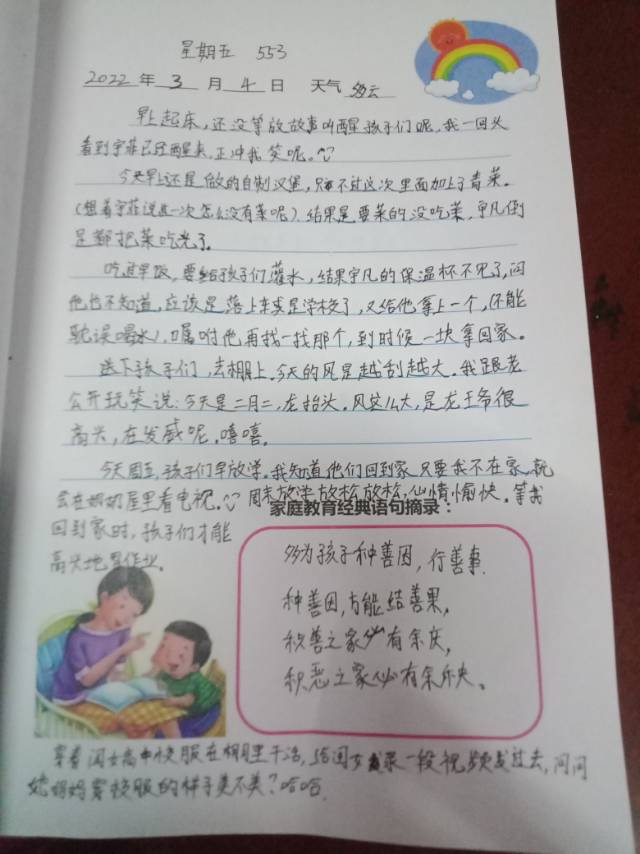 星期五 553
2022年3月4日 天气 多云
早上起床,还没等放故事叫醒孩子们呢,我一回头
看到宇菲已经醒来,正冲我笑呢。
今天早上还是做的自制汉堡,只不过这次里面加上了青菜。
(想着宇菲说这一次怎么没有菜呢)结果是要菜的没吃菜,宇凡倒
是都把菜吃光了。
吃过早饭,要给孩子们灌水,结果宇凡的保温杯不见了,问
他也不知道,应该是落上学校了,又给他拿上一个,(不能
耽误喝水),嘱咐他再找一找那个,到时候一块拿回家。
送下孩子们,去棚上。今天的风是越刮越大。我跟老
公开玩笑说:今天是二月二,龙抬头。风这么大,是龙王爷很
高兴,在发威呢,嘻嘻。
今天周五,孩子们早放学。我知道他们回到家,只要我不在家,就
会在奶奶屋里看电视。周末放学放松放松,心情愉快。等我
家庭教育经典语句摘录:
回到家时,孩子们才能
高兴地写作业。
多为孩子种善因,行善事.
种善因,方能结善果,
积善之家必有余庆,
积恶之家必有余殃。
穿着闺女高中校服在棚里干活,给闺女录一段视频发过去,问问
她妈妈穿校服的样子美不美?哈哈.